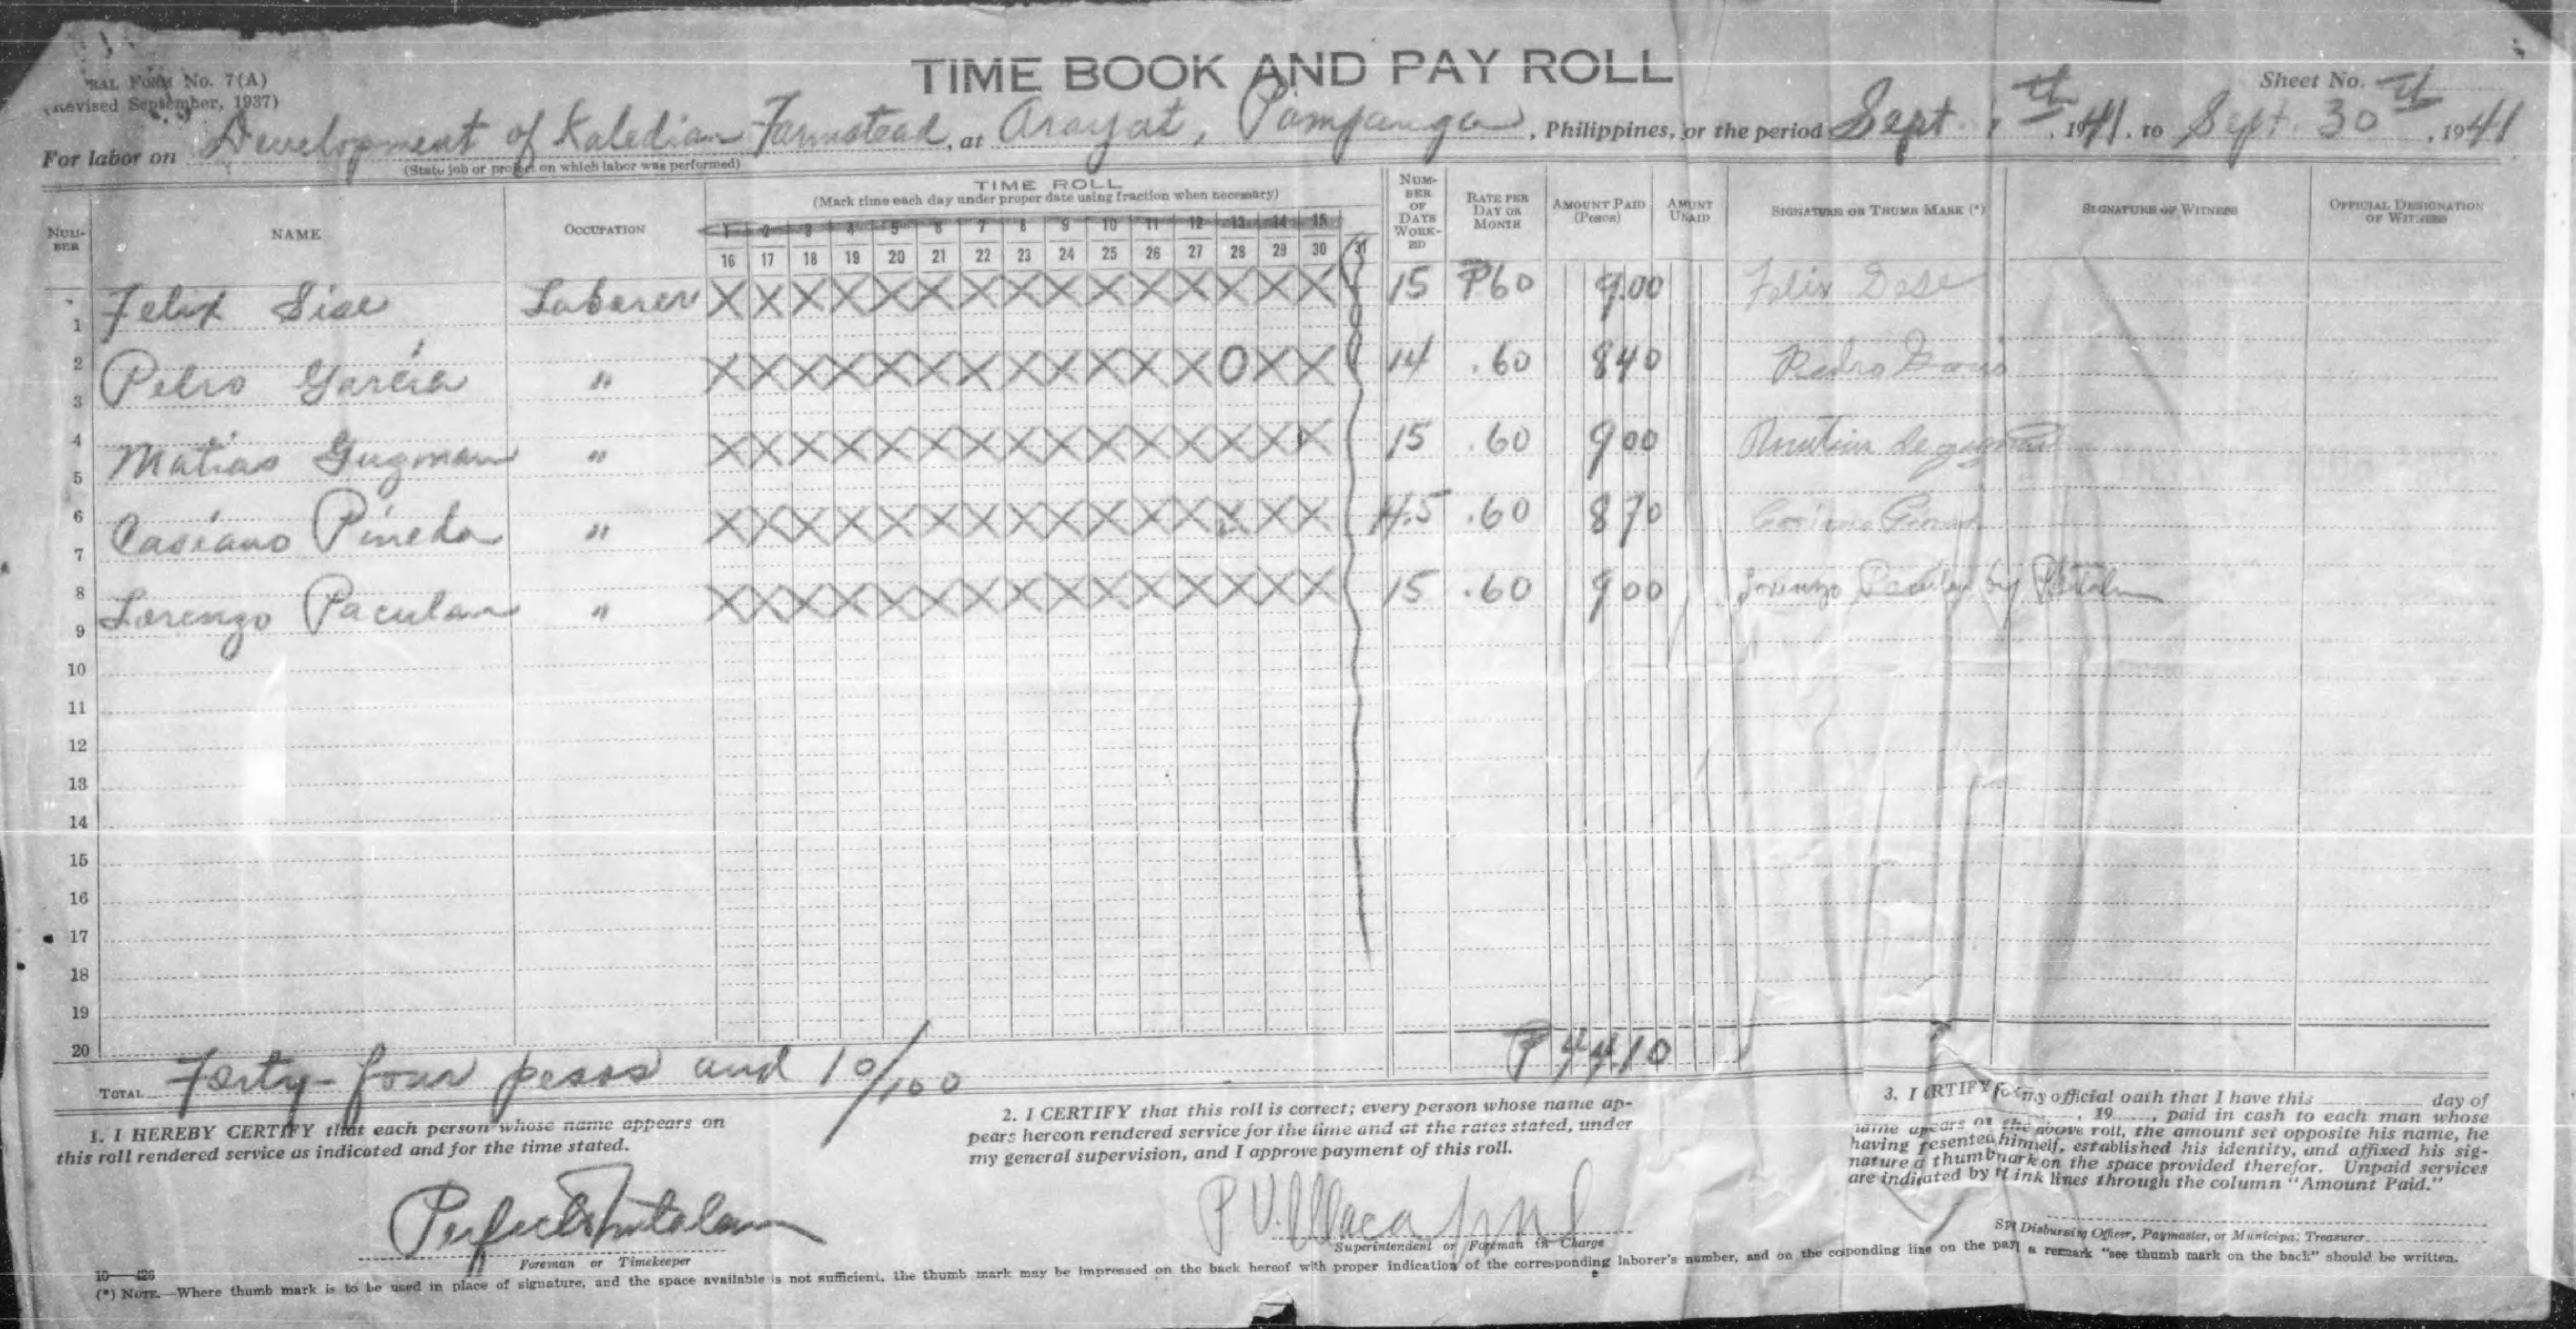 TIME BOOK AND PAY ROLL
FORM No. 7(A)
Sheet No.
(Revised September, 1937)
For labor on Development of Kaledian Farmstead, at Arayat, Pampanga, Philippines, for the period Sept. th, 1941, to Sept. 30th, 1941
(State job or project on which labor was performed)
NUM-BER NAME OCCUPATION TIME ROLL NUM-BER OF DAYS WORK-ED RATE PER DAY OR MONTH AMOUNT PAID (Pesos) AMOUNT UNPAID SIGNATURE OR THUMB MARK (*) SIGNATURE OF WITNESS OFFICIAL DESIGNATION OF WITNESS
(Mark time each day under proper date using fraction when necessary)
1 2 3 4 5 6 7 8 9 10 11 12 13 14 15
16 17 18 19 20 21 22 23 24 25 26 27 28 29 30 31
1 Felix Laborer X X X X X X X X X X X X X X X 15 ₱60 9.00 Felix
2 Pedro Garcia " X X X X X X X X X X X X O X X 14 .60 840 Pedro
3
4 Matias Guzman " X X X X X X X X X X X X X X X 15 .60 900 Matias de
5
6 Casiano Pineda " X X X X X X X X X X X X X X .60 870 Casiano
7
8 Lorenzo Paculan " X X X X X X X X X X X X X X X 15 .60 900 Lorenzo by
9
10
11
12
13
14
15
16
17
18
19
20
TOTAL Forty-four pesos and 10/100 ₱4410
1. I HEREBY CERTIFY that each person whose name appears on
this roll rendered service as indicated and for the time stated.
Foreman or Timekeeper
2. I CERTIFY that this roll is correct; every person whose name ap-
pears hereon rendered service for the time and at the rates stated, under
my general supervision, and I approve payment of this roll.
Superintendent or Foreman in Charge
3. I CERTIFY on my official oath that I have this day of
, 19, paid in cash to each man whose
name appears on the above roll, the amount set opposite his name, he
having presented himself, established his identity, and affixed his sig-
nature or thumb mark on the space provided therefor. Unpaid services
are indicated by ink lines through the column "Amount Paid."
Disbursing Officer, Paymaster, or Municipal Treasurer
10—426
(*) NOTE.—Where thumb mark is to be used in place of signature, and the space available is not sufficient, the thumb mark may be impressed on the back hereof with proper indication of the corresponding laborer's number, and on the coponding line on the pay a remark "see thumb mark on the back" should be written.